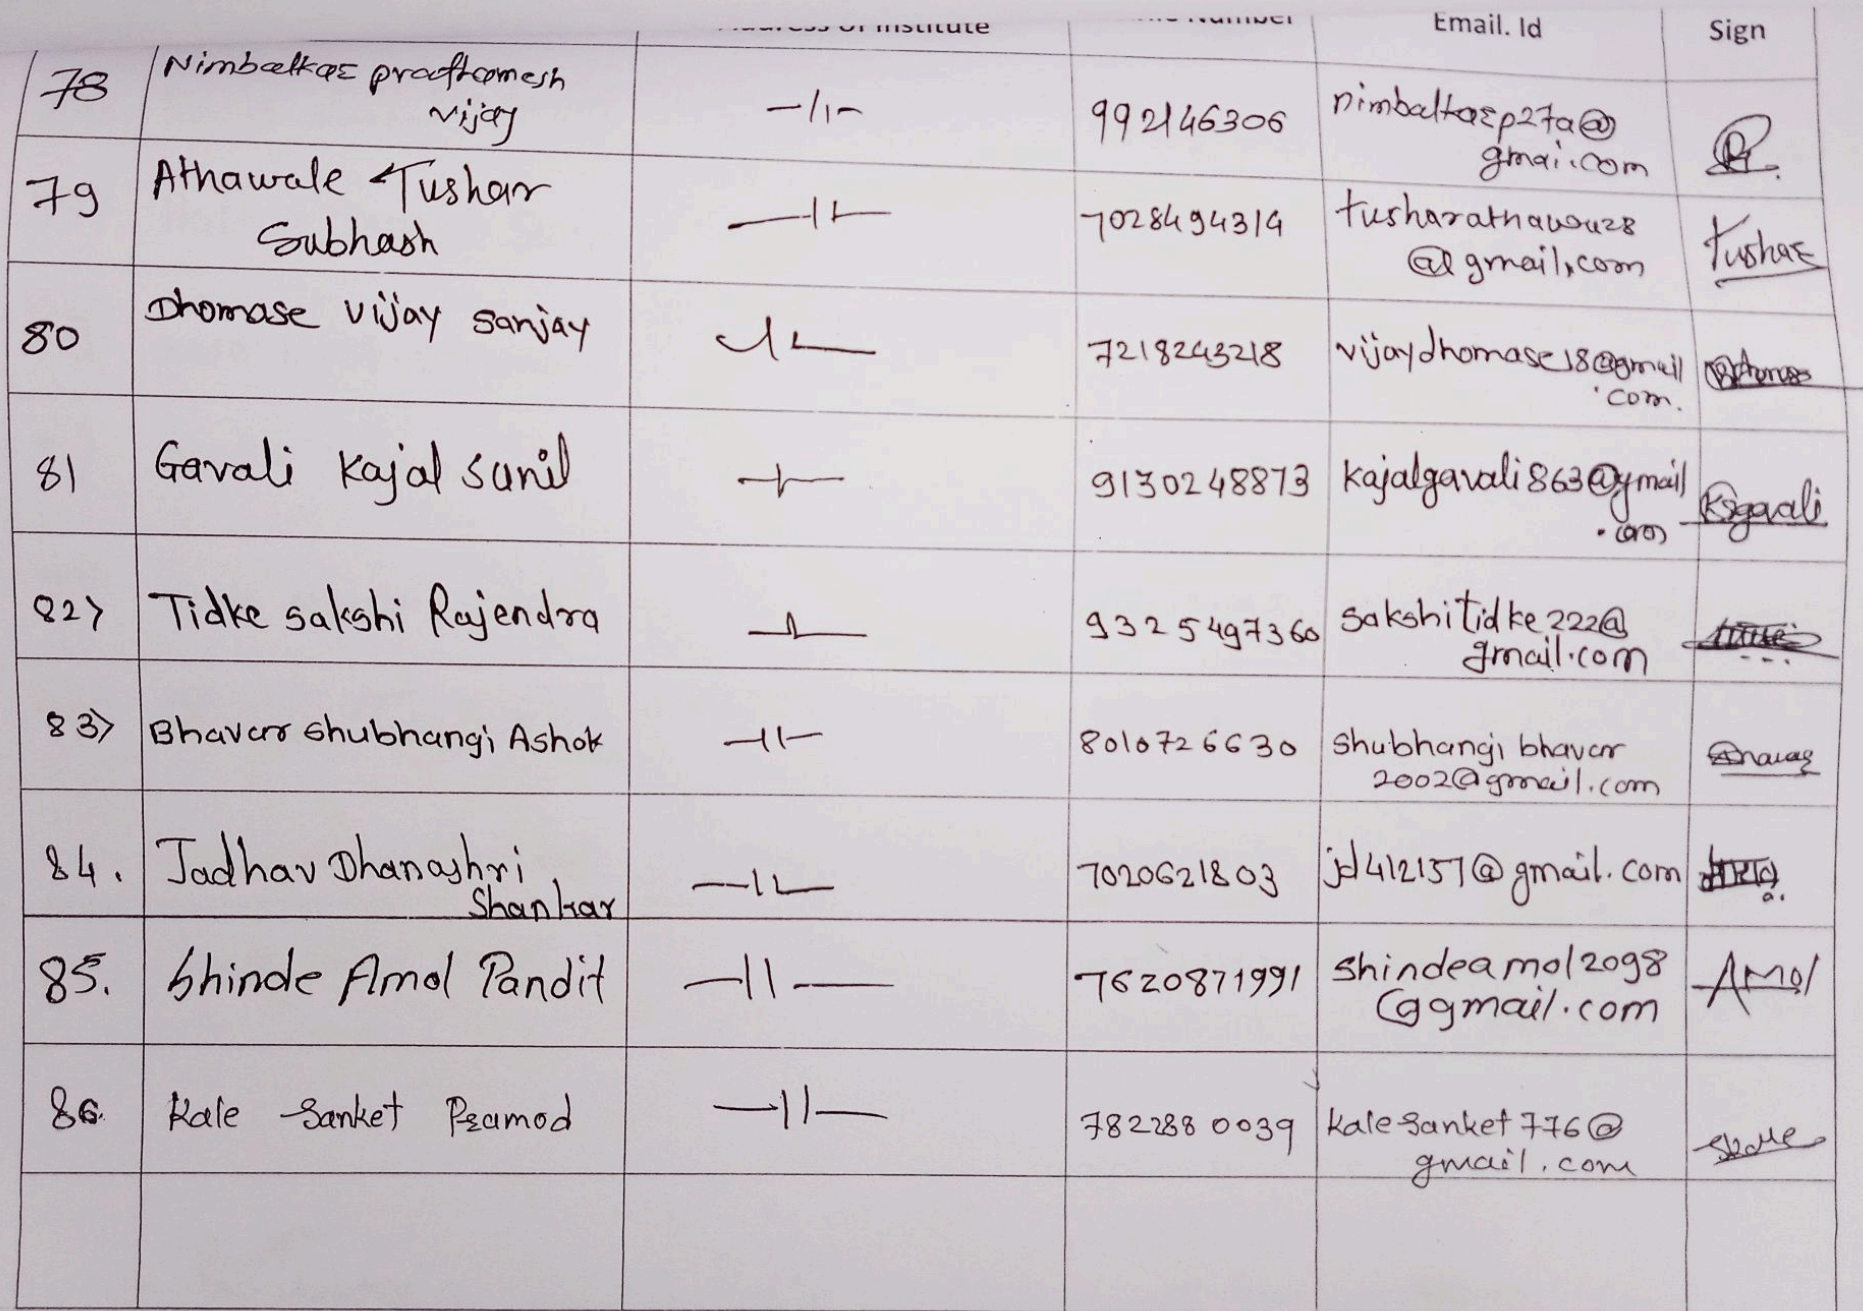 Address of Institute Number Email. Id Sign
78 Nimbalkar prathamesh 992146306 nimbalkarp27a@
vijay gmai.com
79 Athawale Tushar 7028494314 tusharathawa28
Subhash @gmail.com Tushar
80 Dhomase vijay sanjay 7218243218 vijaydhomase18@gmail
.com.
81 Gavali Kajal sunil 9130248873 kajalgavali863@gmail Ksgavali
.com
82) Tidke sakshi Rajendra 9325497360 sakshitidke222@
gmail.com
83) Bhavar shubhangi Ashok 8010726630 shubhangi bhavar
2002@gmail.com
84. Jadhav Dhanashri 7020621803 jd412157@gmail.com
Shankar
85. Shinde Amol Pandit 7620871991 shindeamol2098 Amol
@gmail.com
86. Kale Sanket Pramod 7822880039 kalesanket776@
gmail.com